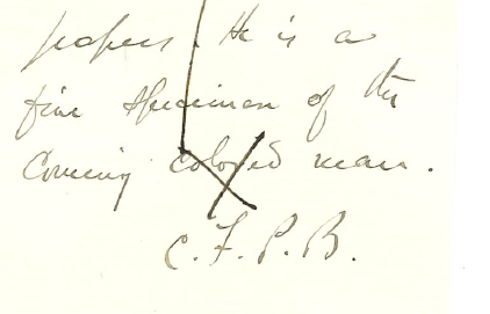 papers. He is a
fine specimen of the
Coming colored man.
C. F. P. B.